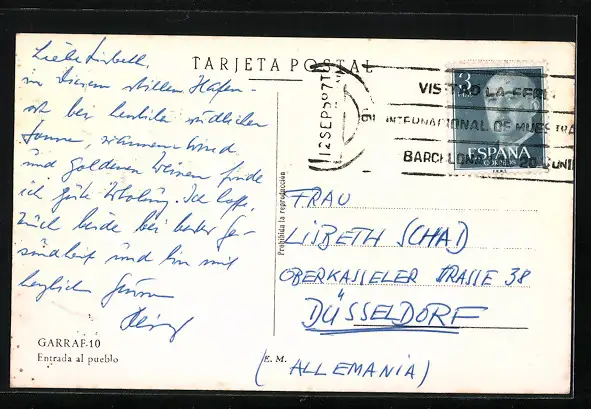 TARJETA POSTAL
Liebe Lisbeth,
in diesem stillen Hafen-
ort bei herrlich südlicher
Sonne, warmem Wind
und goldenen Weinen finde
ich gute Erholung. Ich hoffe,
Euch beide bei bester Ge-
sundheit und bin mit
herzlichen Grüssen
GARRAF-10
Entrada al pueblo
Prohibida la reproducción
E. M.
12 SEP
3
VISITAD LA FERIA
INTERNACIONAL DE MUESTRAS
BARCELONA 20 JUNIO
ESPAÑA
CORREOS
FRAU
LISBETH SCHAD
OBERKASSELER STRASSE 38
DÜSSELDORF
(ALLEMANIA)